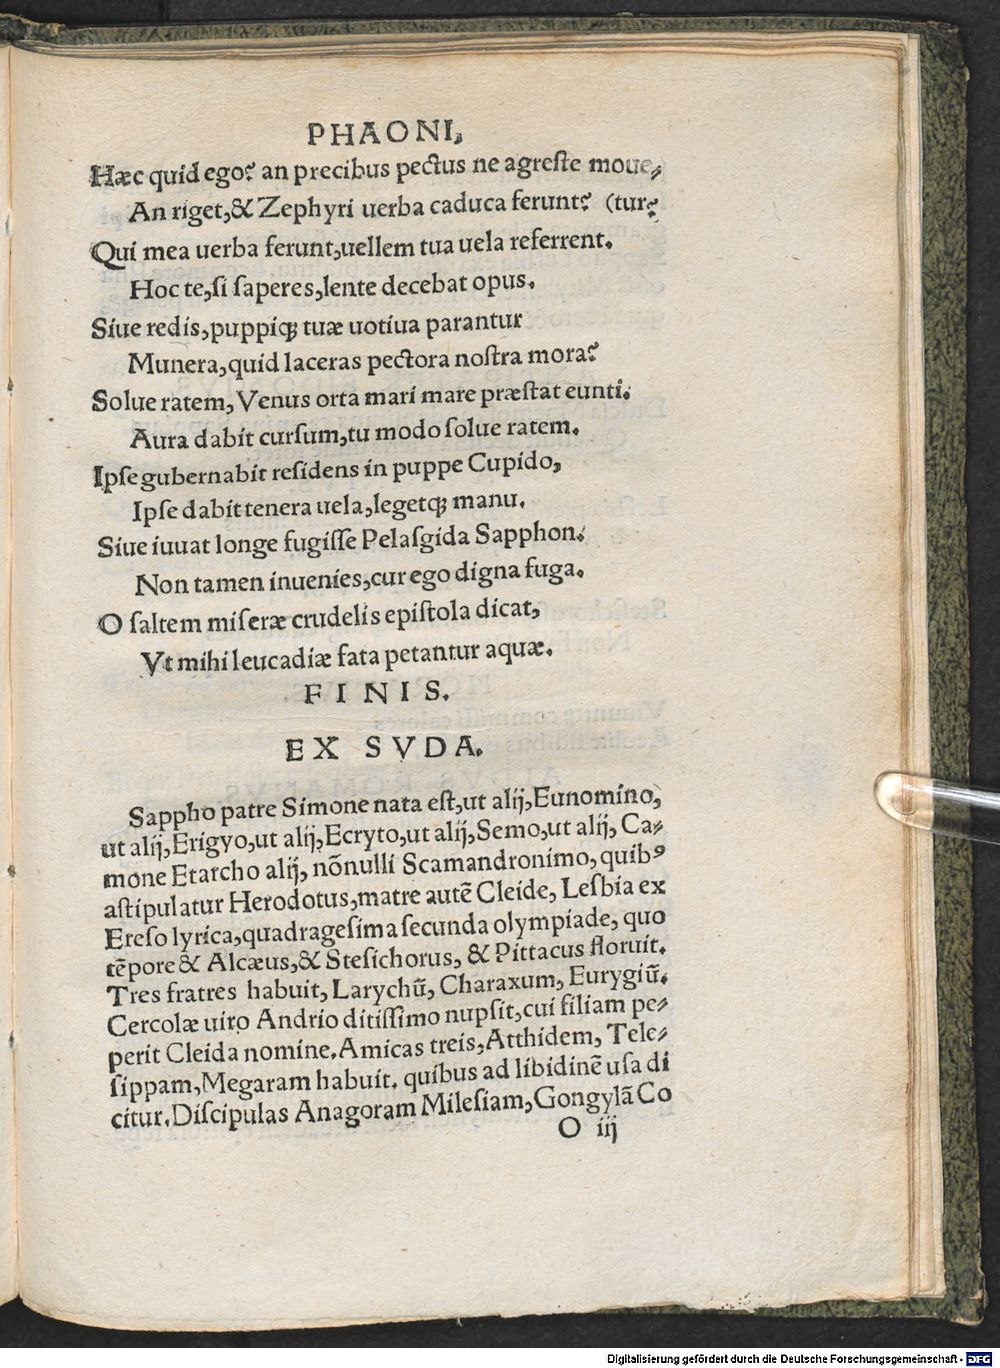 PHAONI,
Hæc quid ego? an precibus pectus ne agreste moue⸗
An riget,& Zephyri uerba caduca ferunt? (tur?
Qui mea uerba ferunt,uellem tua uela referrent.
Hoc te,si saperes,lente decebat opus.
Siue redis,puppiqꝫ tuæ uotiua parantur
Munera,quid laceras pectora nostra mora?
Solue ratem, Venus orta mari mare præstat eunti.
Aura dabit cursum,tu modo solue ratem.
Ipse gubernabit residens in puppe Cupido,
Ipse dabit tenera uela,legetqꝫ manu.
Siue iuuat longe fugisse Pelasgida Sapphon.
Non tamen inuenies,cur ego digna fuga.
O saltem miseræ crudelis epistola dicat,
Vt mihi leucadiæ fata petantur aquæ.
FINIS.
EX SVDA.
Sappho patre Simone nata est,ut alij,Eunomino,
ut alij,Erigyo,ut alij,Ecryto,ut alij,Semo,ut alij, Ca⸗
mone Etarcho alij, nõnulli Scamandronimo, quibꝰ
astipulatur Herodotus,matre autẽ Cleide, Lesbia ex
Ereso lyrica,quadragesima secunda olympiade, quo
tẽpore & Alcæus,& Stesichorus, & Pittacus floruit.
Tres fratres habuit, Larychũ, Charaxum, Eurygiũ.
Cercolæ uiro Andrio ditissimo nupsit,cui filiam pe⸗
perit Cleida nomine.Amicas treis,Atthidem, Tele⸗
sippam,Megaram habuit. quibus ad libidinẽ usa di
citur.Discipulas Anagoram Milesiam,Gongylã Co
O iij
Digitalisierung gefördert durch die Deutsche Forschungsgemeinschaft - DFG